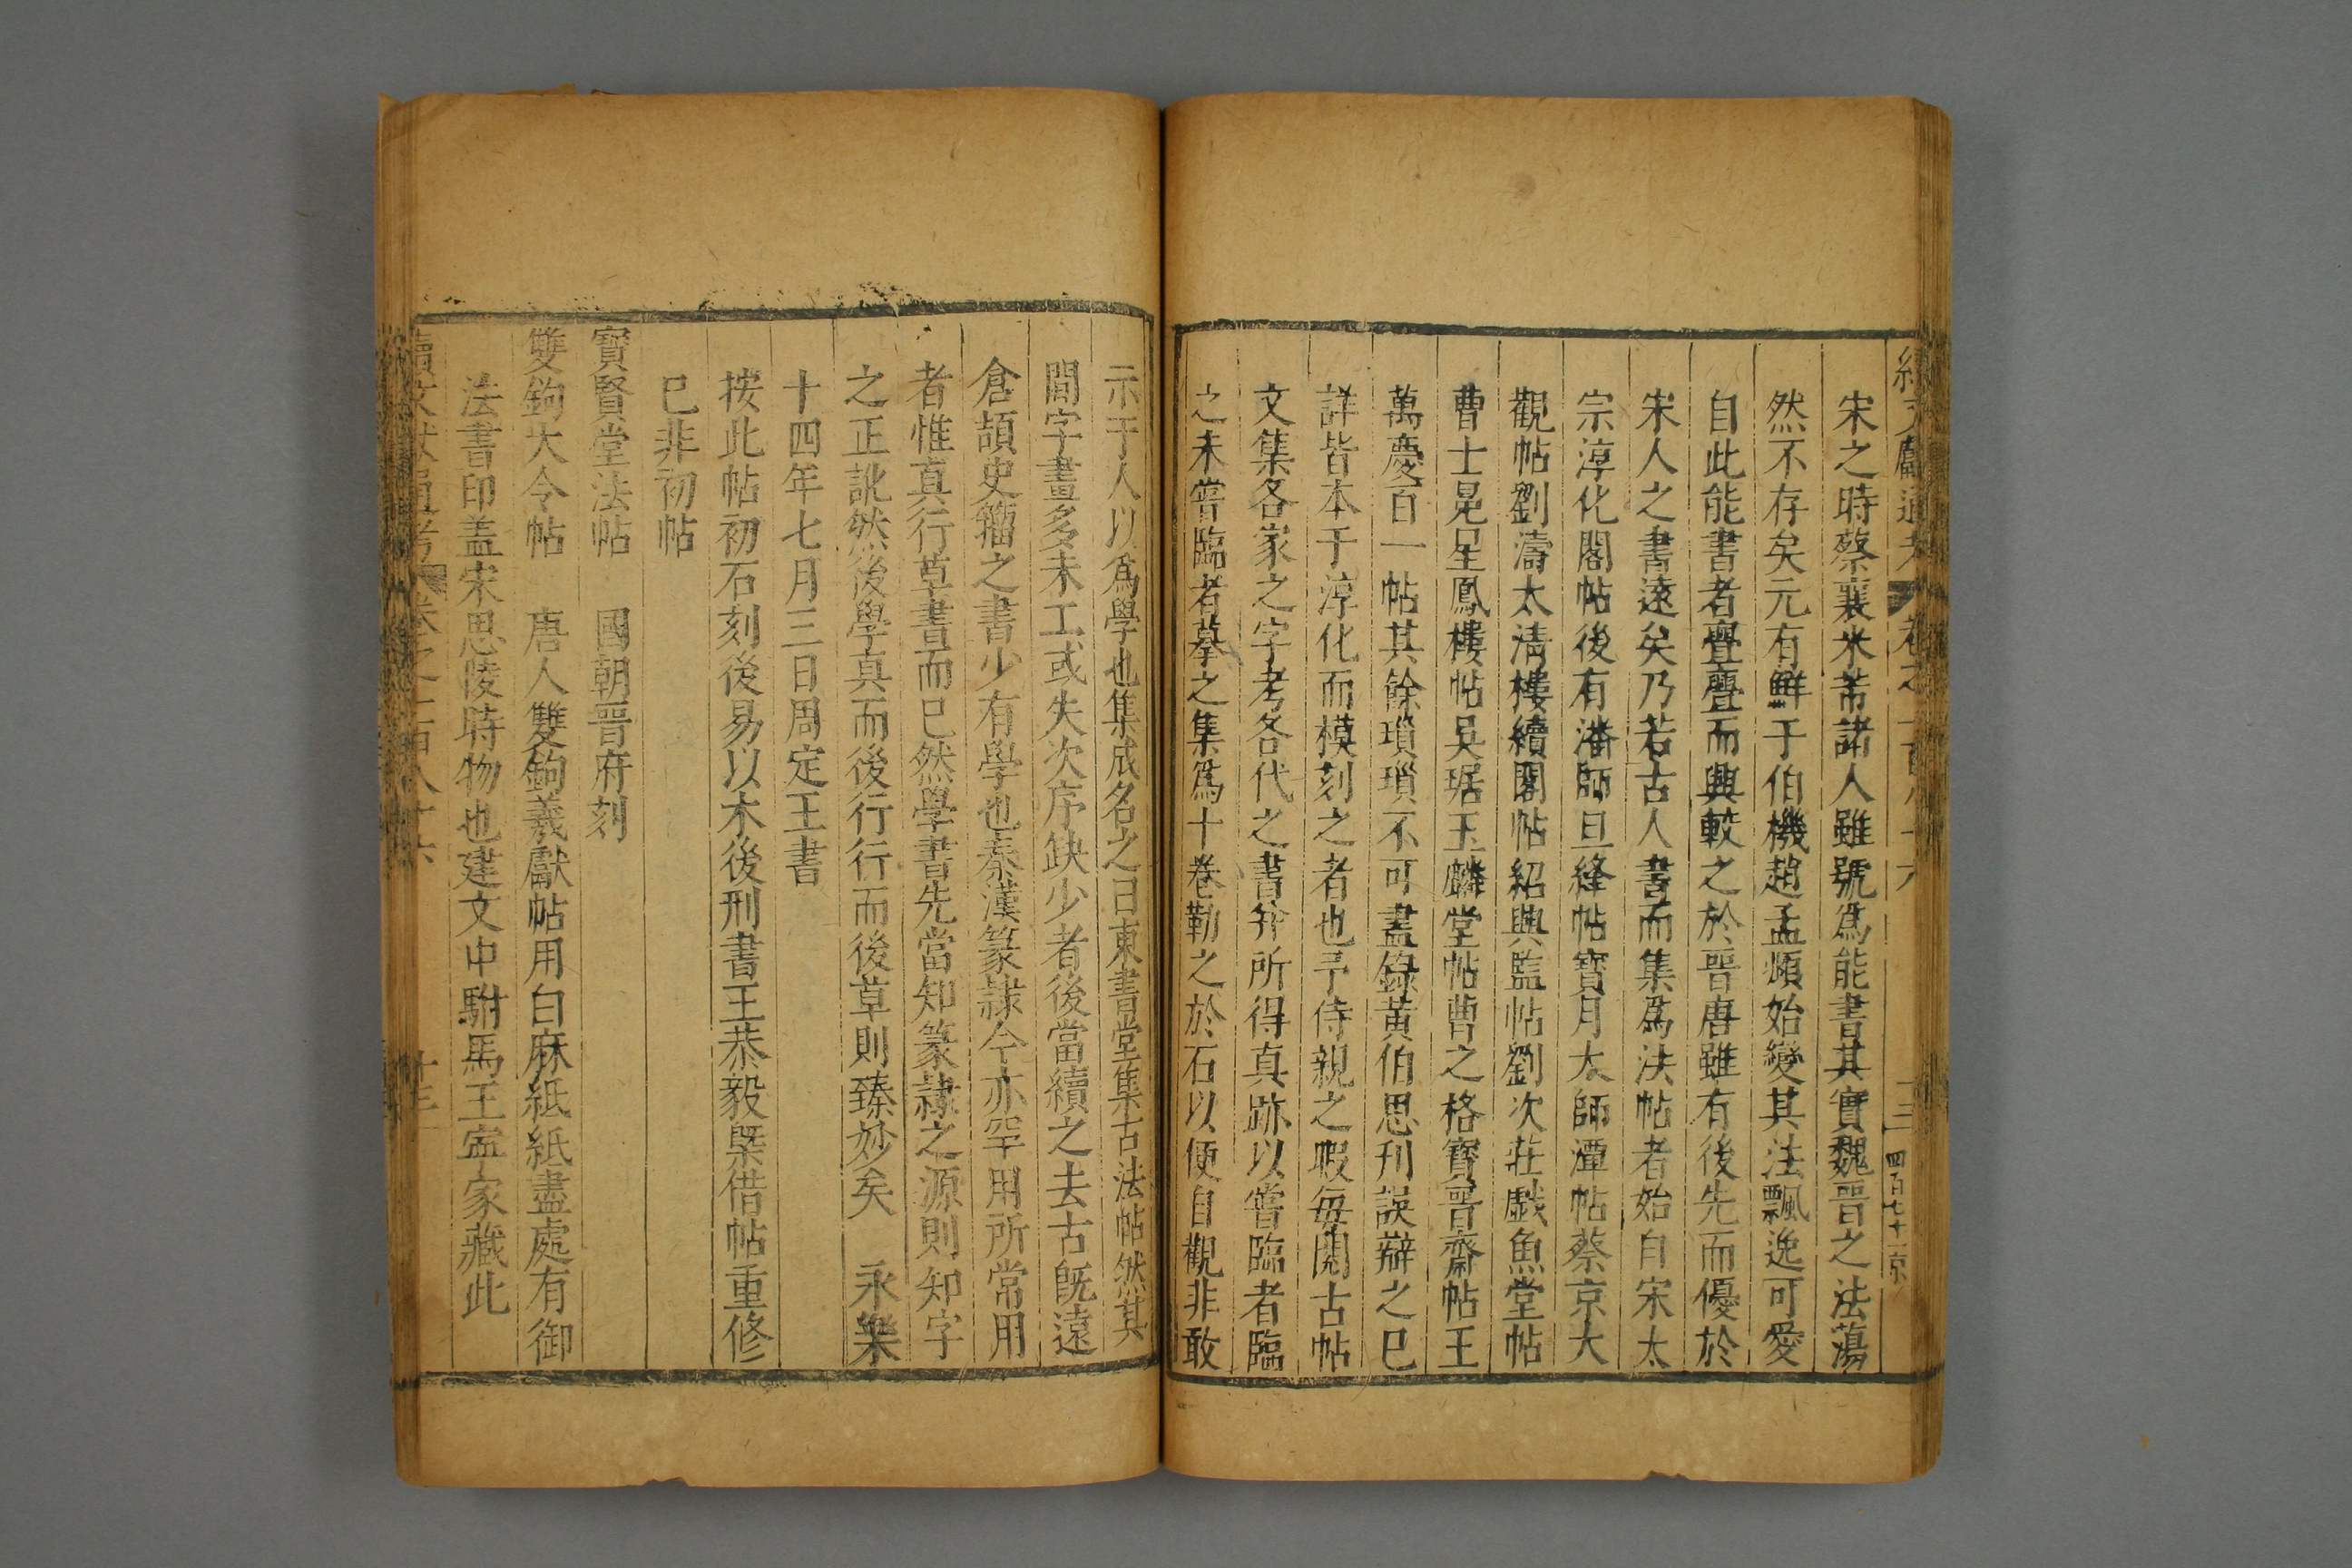 宋之時蔡襄米芾諸人雖號爲能書其實魏晉之法蕩
然不存矣元有鮮于伯機趙孟頫始變其法飄逸可愛
自此能書者亹亹而興較之於晉唐雖有後先而優於
宋人之書遠矣乃若古人書而集爲法帖者始自宋太
宗淳化閣帖後有潘師旦絳帖寶月大師潭帖蔡京大
觀帖劉濤太淸樓續閣帖紹興監帖劉次莊戱魚堂帖
曹士冕星鳳樓帖吳琚玉麟堂帖曹之格寶晉齋帖王
萬慶百一帖其餘瑣瑣不可盡錄黃伯思刋誤辯之巳
詳皆本于淳化而模刻之者也予侍親之暇每閱古帖
文集各家之字考各代之書并所得眞跡以嘗臨者臨
之未嘗臨者摹之集爲十卷勒之於石以便自觀非敢
示于人以爲學也集成名之曰東書堂集古法帖然其
間字畫多未工或失次序缺少者後當續之去古旣遠
倉頡史籀之書少有學也秦漢篆隷今亦罕用所常用
者惟眞行草書而巳然學書先當知篆隷之源則知字
之正訛然後學眞而後行行而後草則臻妙矣　永樂
十四年七月三日周定王書
按此帖初石刻後易以木後刑書王恭毅槩借帖重修
巳非初帖
寶賢堂法帖　國朝晉府刻
雙鉤大令帖　唐人雙鉤羲獻帖用白麻紙紙盡處有御
法書印蓋宋思陵時物也建文中駙馬王寍家藏此
續文獻通考　卷之一百八十六